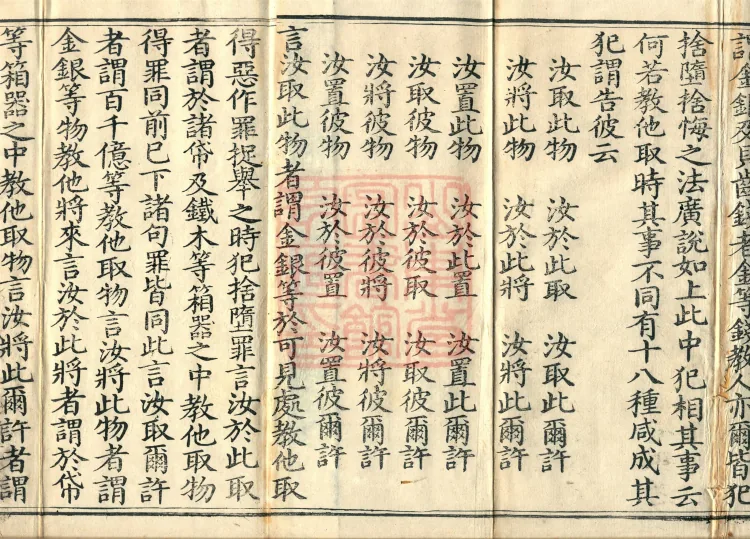 謂金銀及貝齒錢者金等錢教人亦爾皆犯
捨墮捨悔之法廣說如上此中犯相其事云
何若教他取時其事不同有十八種咸成其
犯謂告彼云
汝取此物 汝於此取 汝取此爾許
汝將此物 汝於此將 汝將此爾許
汝置此物 汝於此置 汝置此爾許
汝取彼物 汝於彼取 汝取彼爾許
汝將彼物 汝於彼將 汝將彼爾許
汝置彼物 汝於彼置 汝置彼爾許
言汝取此物者謂金銀等於可見處教他取
得惡作罪捉舉之時犯捨墮罪言汝於此取
者謂於諸帒及鐵木等箱器之中教他取物
得罪同前已下諸句罪皆同此言汝取爾許
者謂百千億等教他取物言汝將此物者謂
金銀等物教他將來言汝於此將者謂於帒
等箱器之中教他取物言汝將此爾許者謂